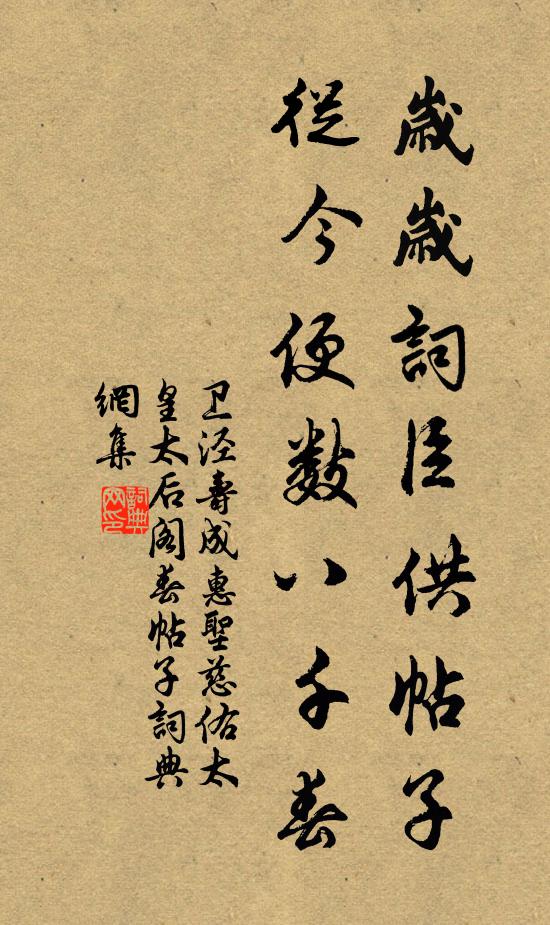 歲歲詞臣供帖子
從今便數八千春
卫涇壽成惠聖慈佑太
皇太后阁春帖子詞典
網集
詞典
网印